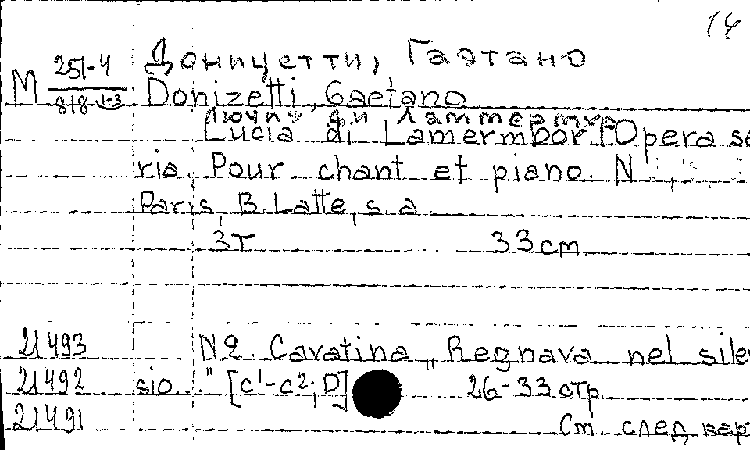 14
Доницетти, Гаэтано
М 251-4
818-1-3
Donizetti, Gaetano
Лючия ди Ламмермур
Lucia di Lamermoor. Opera se
ria. Pour chant et piano. N
Paris, B. Latte, s. a.
3т 33 cm
21493 N2 Cavatina „Regnava nel silen
21492 sio..." [c¹-c²; D] 26-33 стр
21491 См. след кар